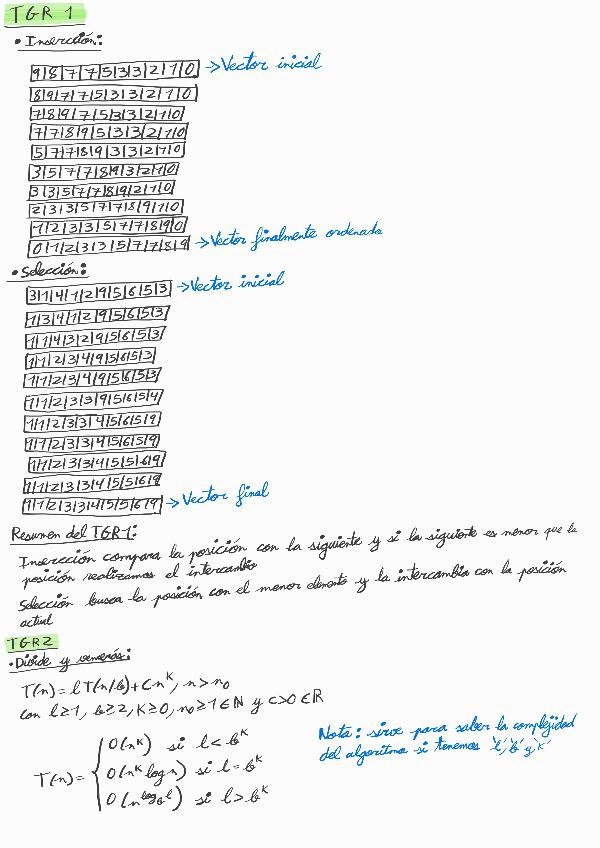 TGR 1
• Inserción:
9|8|7|7|5|3|3|2|1|0 → Vector inicial
8|9|7|7|5|3|3|2|1|0
7|8|9|7|5|3|3|2|1|0
7|7|8|9|5|3|3|2|1|0
5|7|7|8|9|3|3|2|1|0
3|5|7|7|8|9|3|2|1|0
3|3|5|7|7|8|9|2|1|0
2|3|3|5|7|7|8|9|1|0
1|2|3|3|5|7|7|8|9|0
0|1|2|3|3|5|7|7|8|9 → Vector finalmente ordenado
• Selección:
3|1|4|1|2|9|5|6|5|3 → Vector inicial
1|3|4|1|2|9|5|6|5|3
1|1|4|3|2|9|5|6|5|3
1|1|2|3|4|9|5|6|5|3
1|1|2|3|4|9|5|6|5|3
1|1|2|3|3|9|5|6|5|4
1|1|2|3|3|4|5|6|5|9
1|1|2|3|3|4|5|6|5|9
1|1|2|3|3|4|5|5|6|9
1|1|2|3|3|4|5|5|6|9
1|1|2|3|3|4|5|5|6|9 → Vector final
Resumen del TGR-1:
Inserción compara la posición con la siguiente y si la siguiente es menor que la
posición realizamos el intercambio
Selección busca la posición con el menor elemento y la intercambia con la posición
actual
TGR2
• Divide y vencerás:
T(n) = l T(n/b) + C·n^k, n > n₀
con l ≥ 1, b ≥ 2, k ≥ 0, n₀ ≥ 1 ∈ N y c > 0 ∈ R
O(n^k) si l < b^k
T(n) = { O(n^k log n) si l = b^k
O(n^(log_b l)) si l > b^k
Nota: sirve para saber la complejidad
del algoritmo si tenemos 'l', 'b' y 'k'